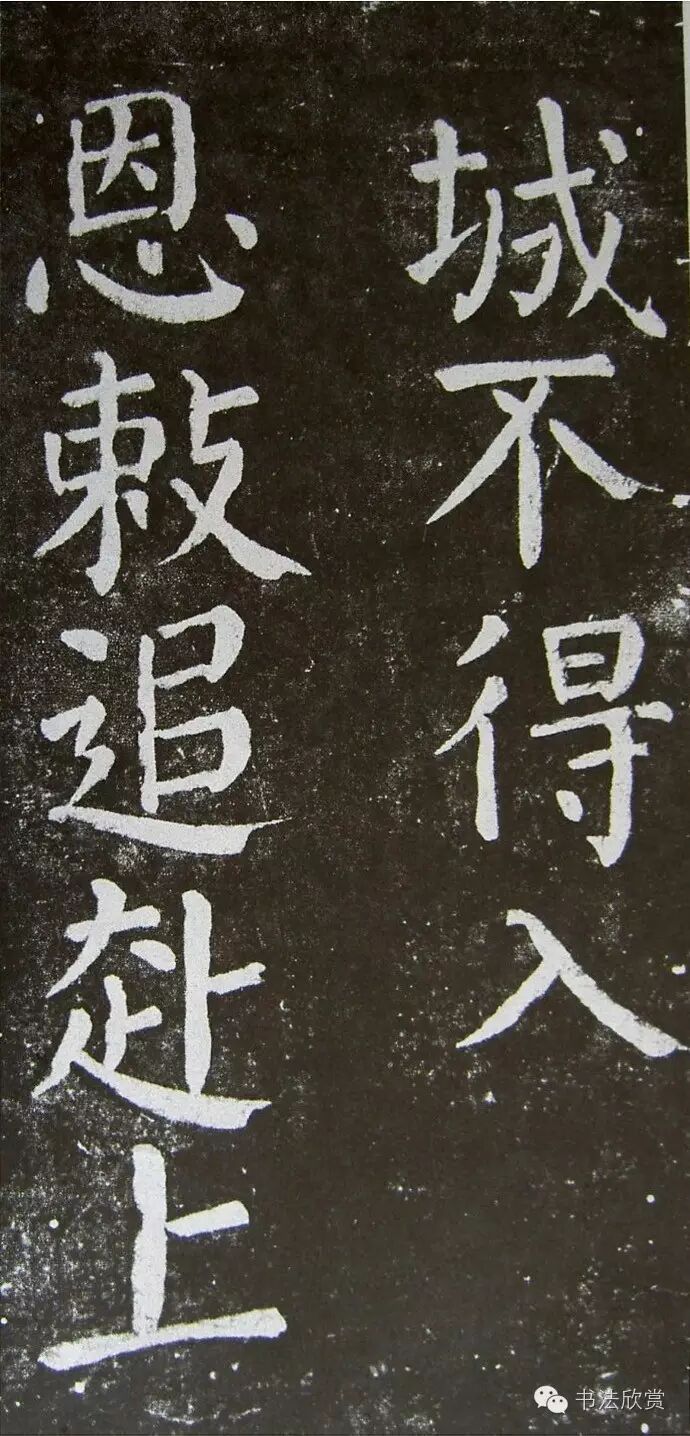 城不得入
恩敕追赴上
书法欣赏